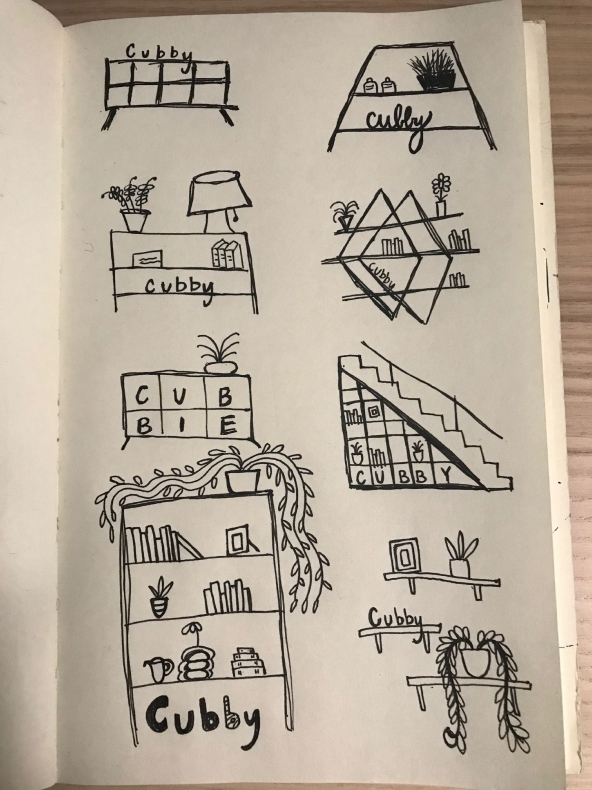 Cubby
cubby
cubby
Cubby
CUB
BIE
CUBBY
Cubby
Cubby